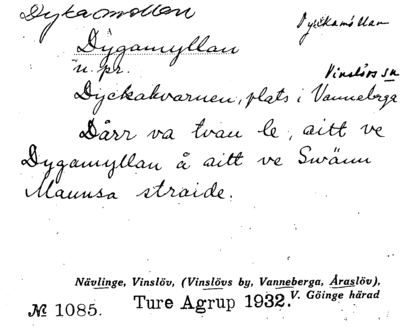 Dykamöllan
Dyckamöllan
Dygamyllan
n. pr.
Vinslövs sn
Dyckakvarnen, plats i Vanneberga
Dårr va tvan le, aitt ve
Dygamyllan å aitt ve Swänn
Maunsa straide.
Nävlinge, Vinslöv, (Vinslövs by, Vanneberga, Åraslöv),
№ 1085. Ture Agrup 1932. V. Göinge härad